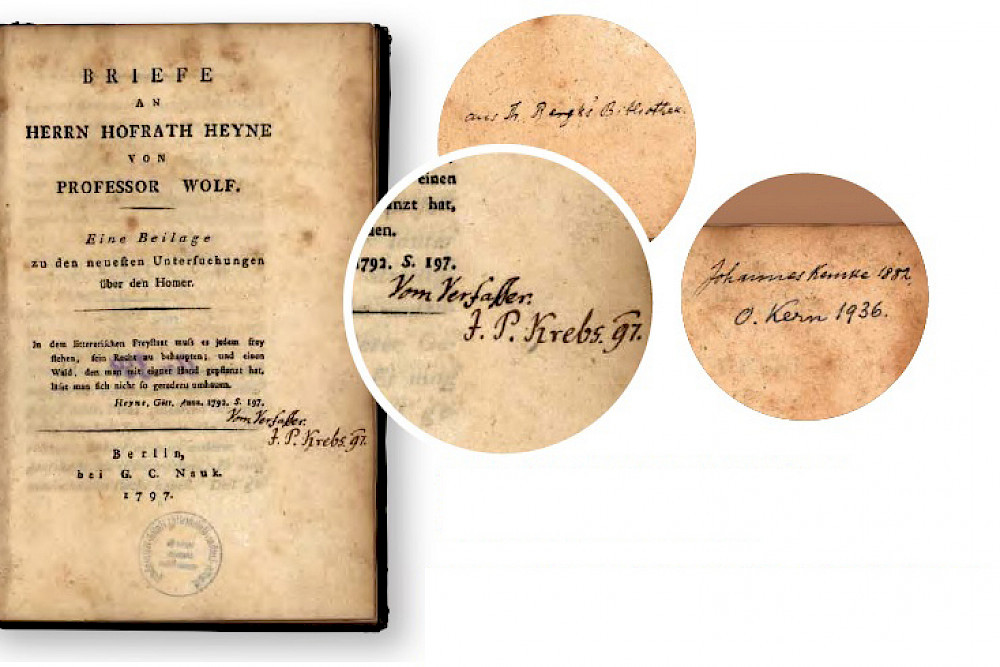 BRIEFE
AN
HERRN HOFRATH HEYNE
VON
PROFESSOR WOLF.
Eine Beilage
zu den neueſten Unterſuchungen
über den Homer.
In dem litterariſchen Freyſtaat muſs es jedem frey
ſtehen, ſein Recht zu behaupten; und einen
Wald, den man mit eigner Hand gepflanzt hat,
läſst man ſich nicht ſo geradezu umhauen.
Heyne, Gött. Anzz. 1792. S. 197.
Vom Verfaſſer.
J. P. Krebs. 97.
Berlin,
bei G. C. Nauk.
1797.
aus Th. Bergk's Bibliothek.
einen
anzt hat,
uen.
1792. S. 197.
Vom Verfaſſer.
J. P. Krebs. 97.
Johannes Kemke 1882.
O. Kern 1936.